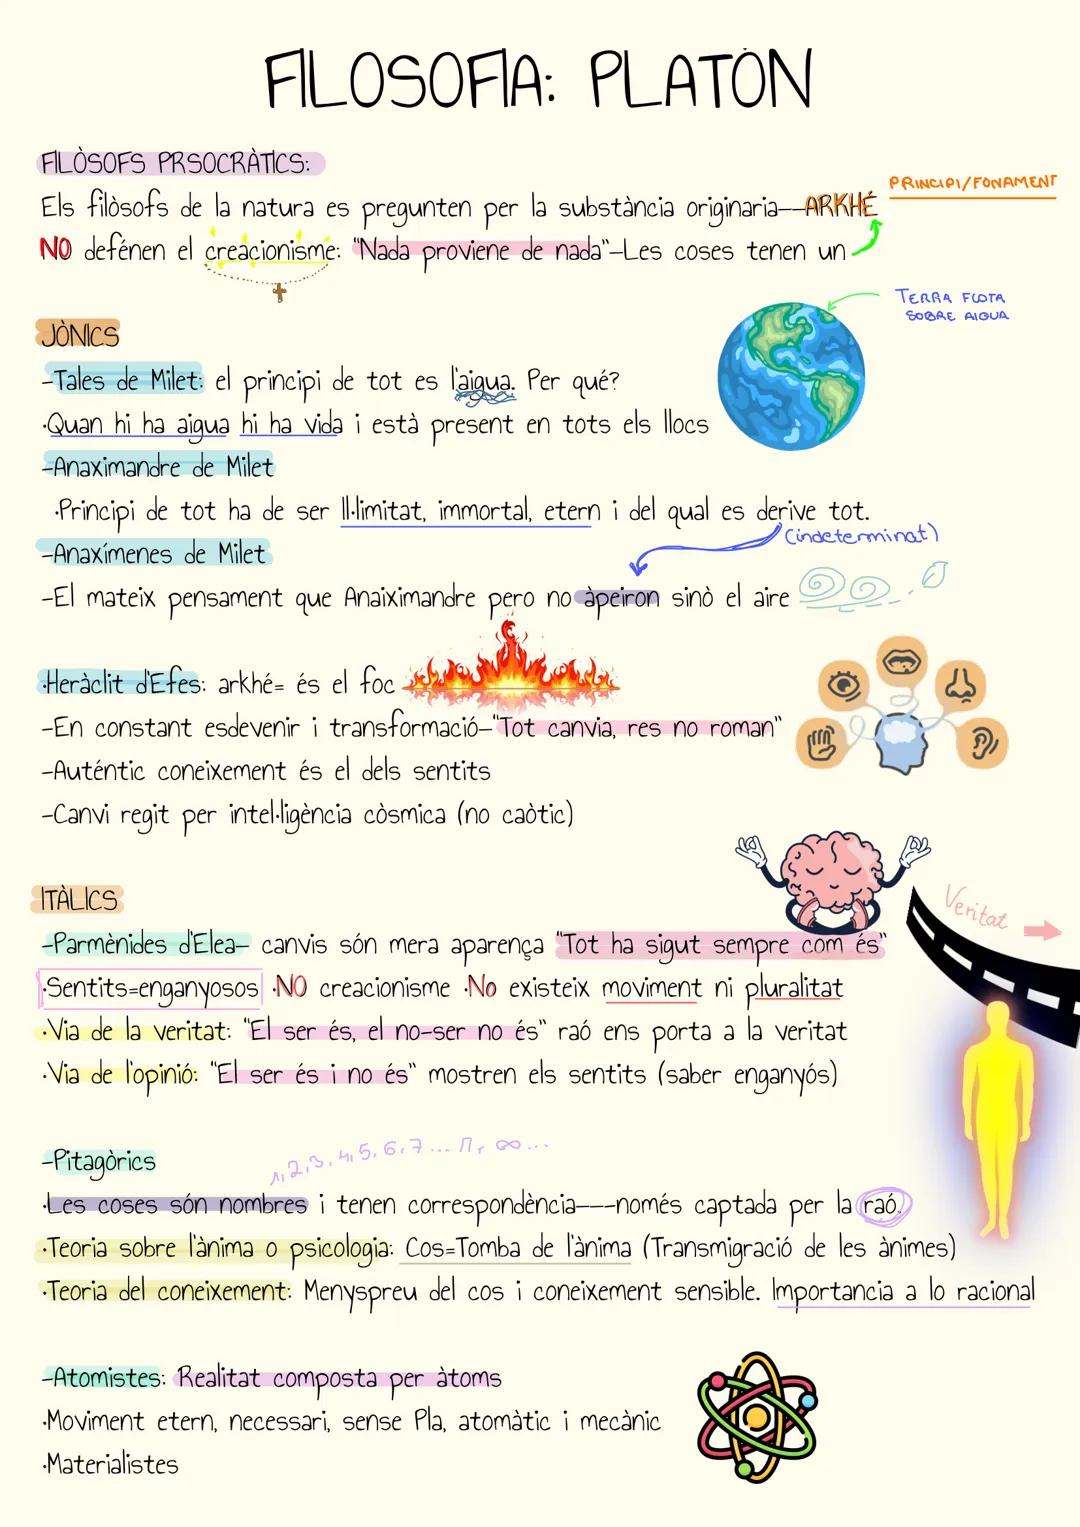 FILOSOFIA: PLATÓN
FILÒSOFS PRSOCRÀTICS:
PRINCIPI/FONAMENT
Els filòsofs de la natura es pregunten per la substància originaria--ARKHÉ
NO defénen el creacionisme: "Nada proviene de nada"-Les coses tenen un
TERRA FLOTA
SOBRE AIGUA
JÒNICS
-Tales de Milet: el principi de tot es l'aigua. Per qué?
·Quan hi ha aigua hi ha vida i està present en tots els llocs
-Anaximandre de Milet
·Principi de tot ha de ser Il·limitat, immortal, etern i del qual es derive tot.
(indeterminat)
-Anaxímenes de Milet
-El mateix pensament que Anaiximandre pero no àpeiron sinò el aire
·Heràclit d'Efes: arkhé= és el foc
-En constant esdevenir i transformació-"Tot canvia, res no roman"
-Auténtic coneixement és el dels sentits
-Canvi regit per intel·ligència còsmica (no caòtic)
ITÀLICS
Veritat
-Parmènides d'Elea- canvis són mera aparença "Tot ha sigut sempre com és"
·Sentits=enganyosos ·NO creacionisme ·No existeix moviment ni pluralitat
·Via de la veritat: "El ser és, el no-ser no és" raó ens porta a la veritat
·Via de l'opinió: "El ser és i no és" mostren els sentits (saber enganyós)
1,2,3,4,5,6,7...π, ∞...
-Pitagòrics
·Les coses són nombres i tenen correspondència---només captada per la raó.
·Teoria sobre l'ànima o psicologia: Cos=Tomba de l'ànima (Transmigració de les ànimes)
·Teoria del coneixement: Menyspreu del cos i coneixement sensible. Importancia a lo racional
-Atomistes: Realitat composta per àtoms
·Moviment etern, necessari, sense Pla, atomàtic i mecànic
·Materialistes